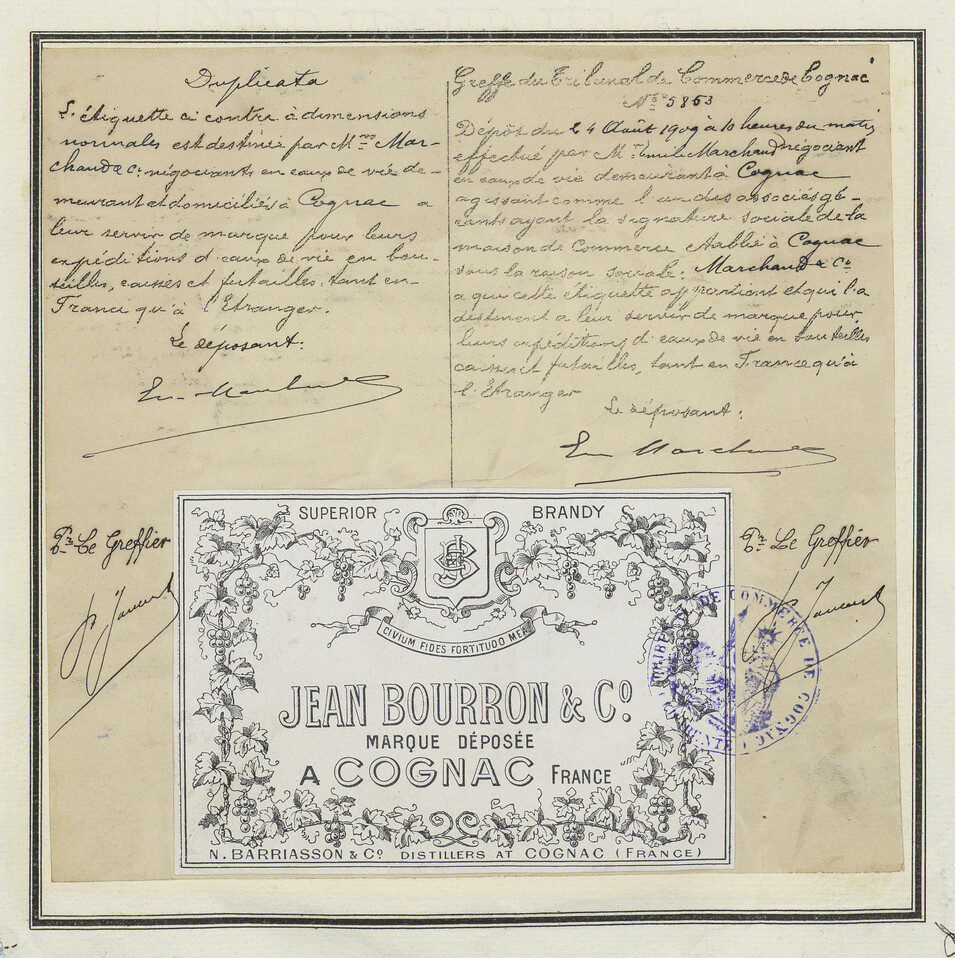 Duplicata
L'étiquette ci contre à dimensions
normales est destinée par Mrs Mar-
chand & Co négociants en eaux de vie de-
meurant et domiciliés à Cognac a
leur servir de marque pour leurs
expéditions d'eaux de vie en bou-
teilles, caisses et futailles, tant en
France qu'à l'Etranger.
Le déposant:
Em Marchand
Pr Le Greffier
Greffe du Tribunal de Commerce de Cognac
No 5853
Dépôt du 24 Août 1909 à 10 heures du matin
effectué par Mr Emile Marchand négociant
en eaux de vie demeurant à Cognac
agissant comme l'un des associés gé-
rants ayant la signature sociale de la
maison de Commerce établie à Cognac
sous la raison sociale: Marchand & Co
a qui cette étiquette appartient et qui l'a
destinent a leur servir de marque pour
leurs expéditions d'eaux de vie en bouteilles
caisses et futailles, tant en France qu'à
l'Etranger
Le déposant:
Em Marchand
Pr Le Greffier
SUPERIOR BRANDY
CIVIUM FIDES FORTITUDO MEA
JEAN BOURRON & Co.
MARQUE DÉPOSÉE
A COGNAC FRANCE
N. BARRIASSON & Co DISTILLERS AT COGNAC (FRANCE)
TRIBUNAL DE COMMERCE DE COGNAC